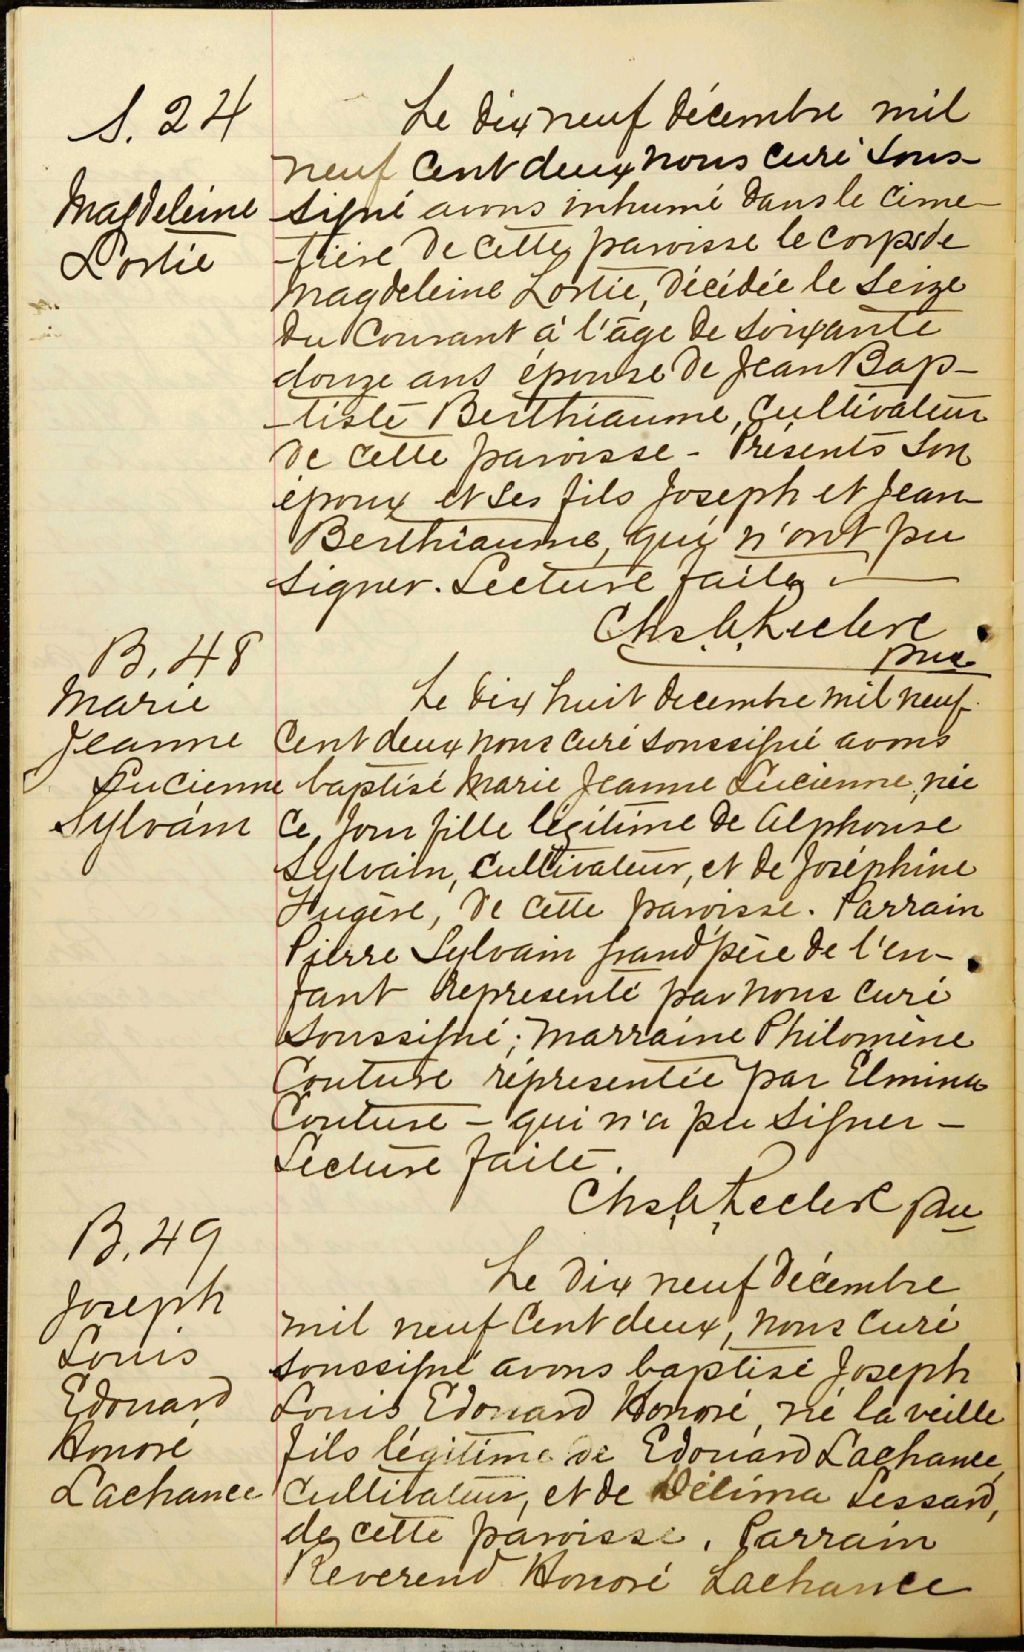 S. 24
Magdeleine
Lortie
Le dix neuf décembre mil
neuf cent deux nous curé sous-
signé avons inhumé dans le cime-
-tière de cette paroisse le corps de
Magdeleine Lortie, décédée le seize
du courant à l'âge de soixante
douze ans épouse de Jean Bap-
-tiste Berthiaume, cultivateur
de cette paroisse - Présents son
époux et ses fils Joseph et Jean
Berthiaume, qui n'ont pu
signer. Lecture faite.
Chs. Leclerc
ptre
B. 48
Marie
Jeanne
Lucienne
Sylvain
Le dix huit decembre mil neuf
cent deux nous curé soussigné avons
baptisé Marie Jeanne Lucienne, née
ce jour fille légitime de Alphonse
Sylvain, cultivateur, et de Joséphine
Fugère, de cette paroisse. Parrain
Pierre Sylvain grand'père de l'en-
fant representé par nous curé
soussigné; marraine Philomène
Couture répresentée par Elmina
Couture - qui n'a pu signer -
Lecture faite.
Chs. Leclerc ptre
B. 49
Joseph
Louis
Edouard
Honoré
Lachance
Le dix neuf décembre
mil neuf cent deux, nous curé
soussigné avons baptisé Joseph
Louis Edouard Honoré, né la veille
fils légitime de Edouard Lachance,
cultivateur, et de Délima Lessard,
de cette paroisse. Parrain
Reverend Honoré Lachance